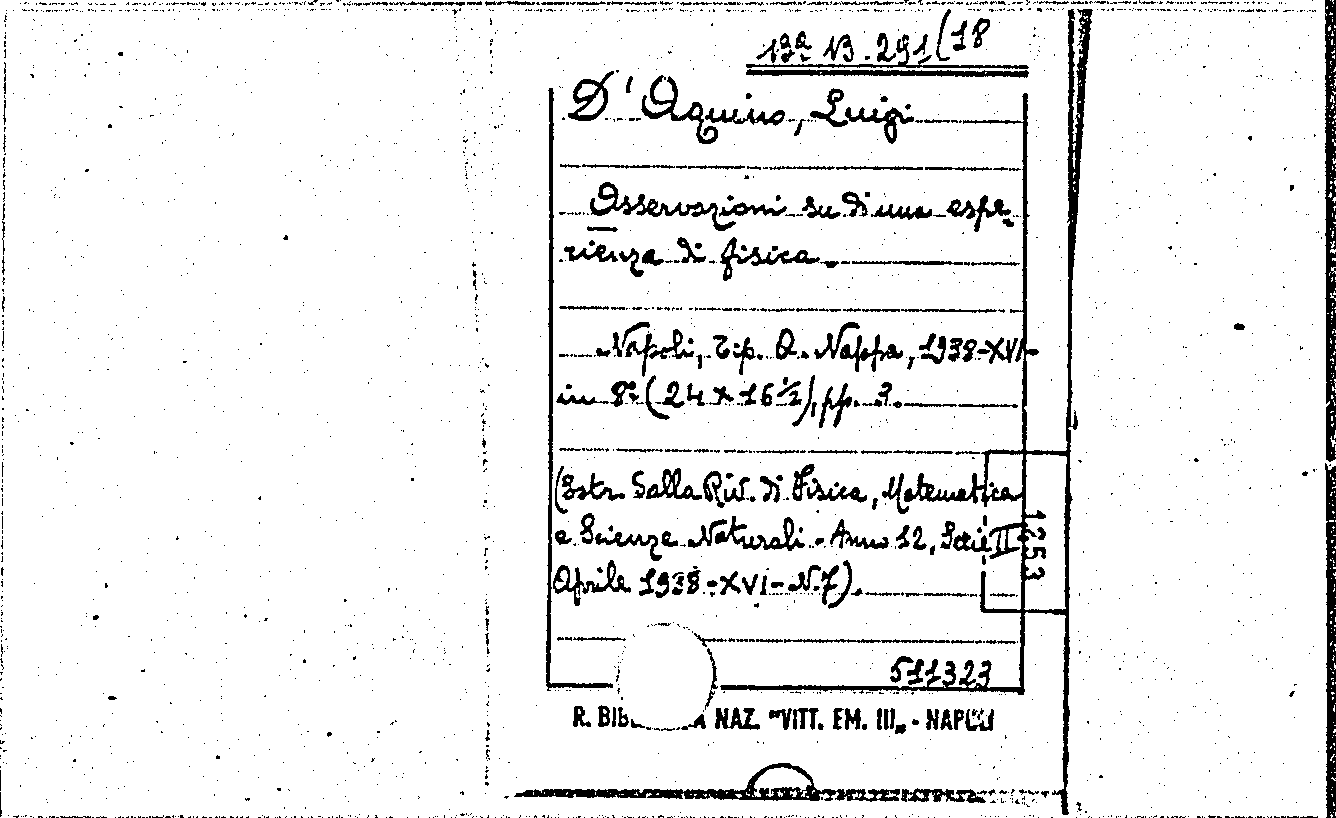 13ª B. 291(18
D'Aquino, Luigi
Osservazioni su di una espe-
rienza di fisica.
Napoli, Tip. A. Nappa, 1938-XVI-
in 8º (24 x 16 ½), pp. 3.
(Estr. dalla Riv. di Fisica, Matematica
e Scienze Naturali - Anno 12, Serie II
Aprile 1938-XVI-N.7).
1253
511323
R. NAZ. "VITT. EM. III„ - NAPOLI